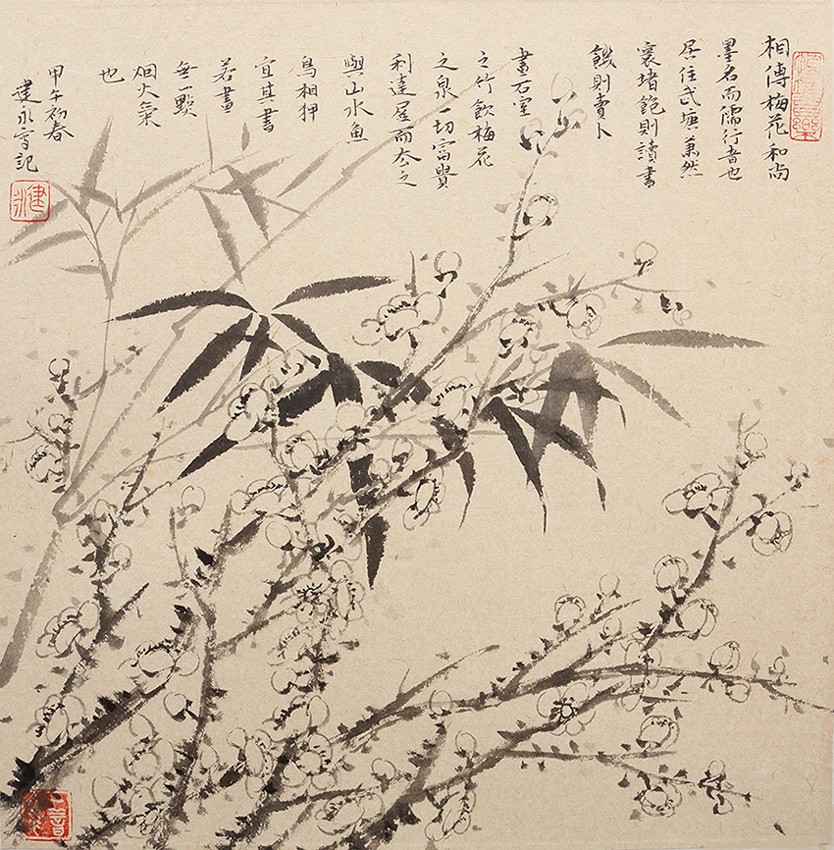 相傳梅花和尚
墨名而儒行者也
居住武塘蕭然
寰堵飽則讀書
饑則賣卜
畫石室
之竹飲梅花
之泉一切富貴
利達屏而去之
與山水魚
鳥相狎
宜其書
若畫
無一點
烟火氣
也
甲午初春
建永 記
建永